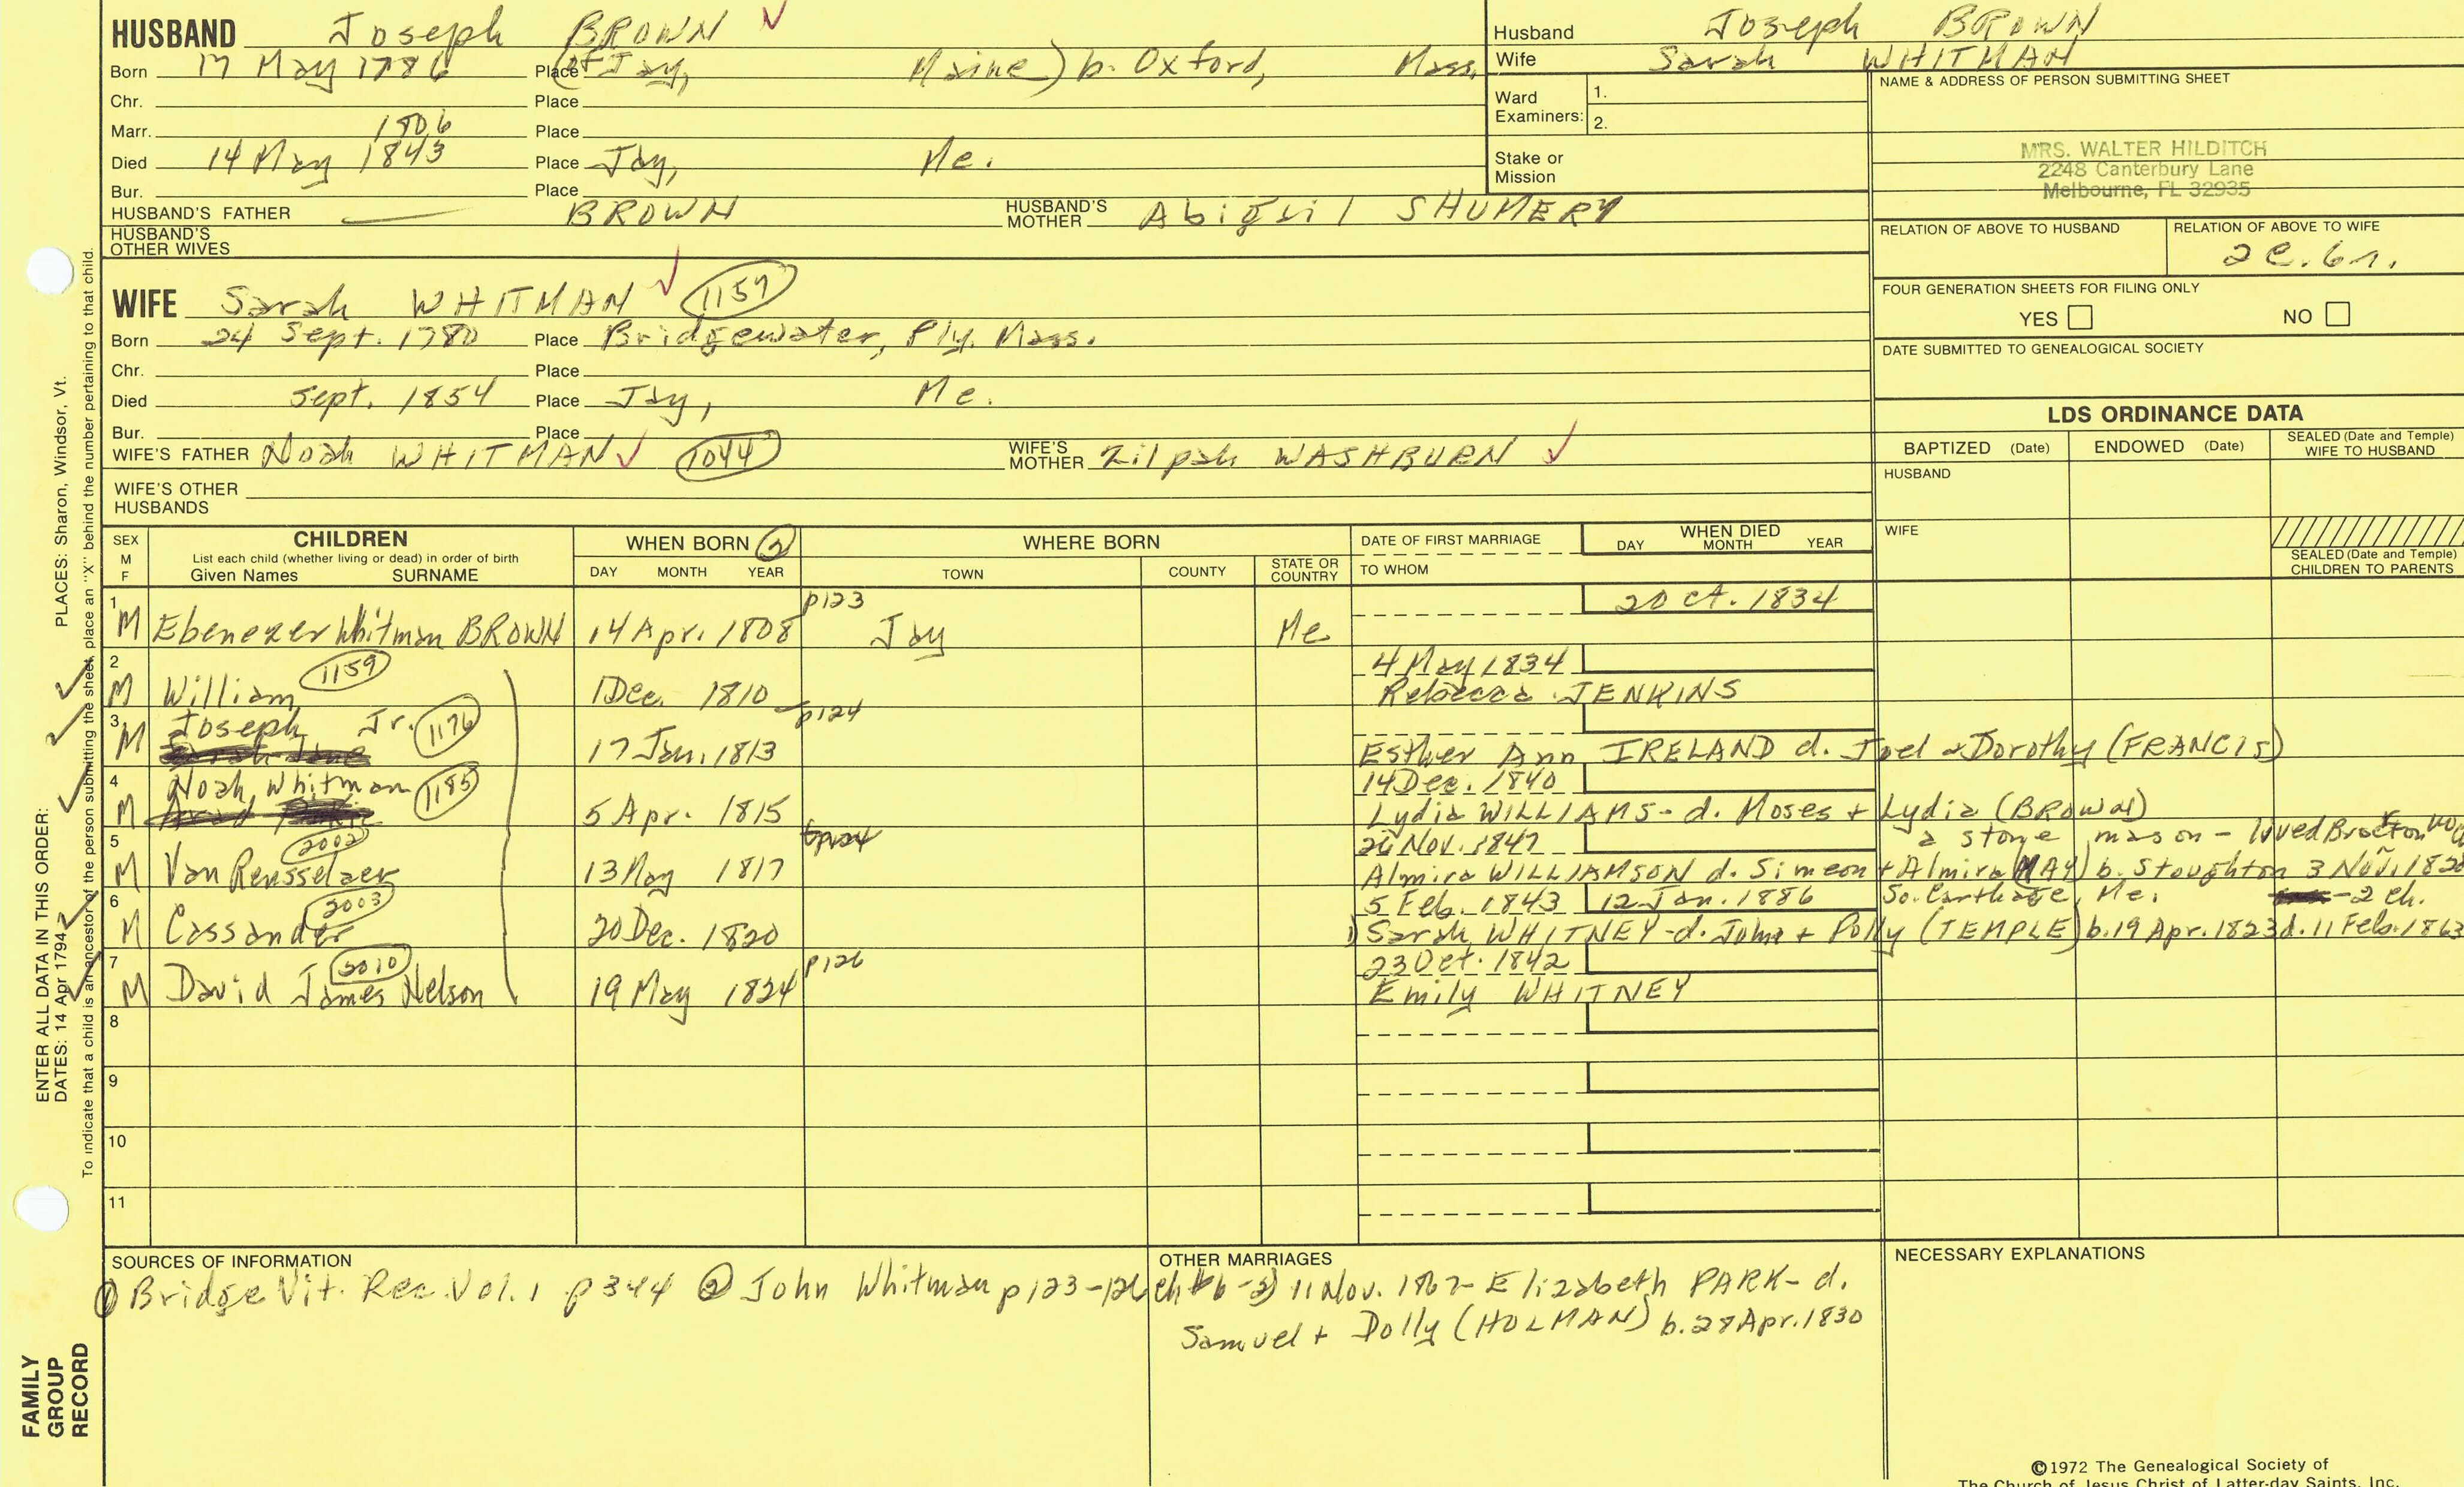 HUSBAND Joseph BROWN ✓
Born 17 May 1786 Place (of Jay, Maine) b. Oxford, Mass.
Chr. Place
Marr. 1806 Place
Died 14 May 1843 Place Jay, Me.
Bur. Place
HUSBAND'S FATHER — BROWN HUSBAND'S MOTHER Abigail SHUMERY
HUSBAND'S OTHER WIVES
Husband Joseph BROWN
Wife Sarah WHITMAN
Ward Examiners: 1.
2.
Stake or Mission
NAME & ADDRESS OF PERSON SUBMITTING SHEET
MRS. WALTER HILDITCH
2248 Canterbury Lane
Melbourne, FL 32935
RELATION OF ABOVE TO HUSBAND RELATION OF ABOVE TO WIFE
2c. 6r.
FOUR GENERATION SHEETS FOR FILING ONLY
YES NO
DATE SUBMITTED TO GENEALOGICAL SOCIETY
WIFE Sarah WHITMAN ✓ 1157
Born 24 Sept. 1780 Place Bridgewater, Ply. Mass.
Chr. Place
Died Sept. 1854 Place Jay, Me.
Bur. Place
WIFE'S FATHER Noah WHITMAN ✓ 1044 WIFE'S MOTHER Zilpah WASHBURN ✓
WIFE'S OTHER HUSBANDS
LDS ORDINANCE DATA
BAPTIZED (Date) ENDOWED (Date) SEALED (Date and Temple) WIFE TO HUSBAND
HUSBAND
WIFE
SEALED (Date and Temple) CHILDREN TO PARENTS
SEX M F CHILDREN
List each child (whether living or dead) in order of birth
Given Names SURNAME
WHEN BORN 2
DAY MONTH YEAR
WHERE BORN
TOWN COUNTY STATE OR COUNTRY
DATE OF FIRST MARRIAGE
TO WHOM
WHEN DIED
DAY MONTH YEAR
1 p123 2 Oct. 1834
M Ebenezer Whitman BROWN 14 Apr. 1808 Jay Me
2 1159 4 May 1834
M William 1 Dec. 1810 Rebecca JENKINS
3 Joseph Jr. 1176 p124
M 17 Jan. 1813 Esther Ann IRELAND d. Joel & Dorothy (FRANCIS)
4 Noah Whitman 1185 14 Dec. 1840
M 5 Apr. 1815 Lydia WILLIAMS - d. Moses + Lydia (BROWN)
5 2002 Nov. 1847 a stone mason - lived Brocton
M Van Rensselaer 13 May 1817 Almira WILLIAMSON d. Simeon + Almira (MAY) b. Stoughton 3 Nov. 1820
6 2003 5 Feb. 1843 12 Jan. 1886 So. Carthage, Me. - 2 ch.
M Cassander 20 Dec. 1820 1) Sarah WHITNEY - d. John + Polly (TEMPLE) b. 19 Apr. 1823 d. 11 Feb. 1863
7 2010 p126 23 Oct. 1842
M David James Nelson 19 May 1824 Emily WHITNEY
8
9
10
11
SOURCES OF INFORMATION
① Bridge Vit. Rec. Vol. 1 p344 ② John Whitman p123-126
OTHER MARRIAGES
ch #6 - 2) 11 Nov. 1867 - Elizabeth PARK - d.
Samuel + Dolly (HOLMAN) b. 28 Apr. 1830
NECESSARY EXPLANATIONS
©1972 The Genealogical Society of
The Church of Jesus Christ of Latter-day Saints, Inc.
ENTER ALL DATA IN THIS ORDER:
DATES: 14 Apr 1794 PLACES: Sharon, Windsor, Vt.
To indicate that a child is an ancestor of the person submitting the sheet, place an "X" behind the number pertaining to that child.
FAMILY
GROUP
RECORD